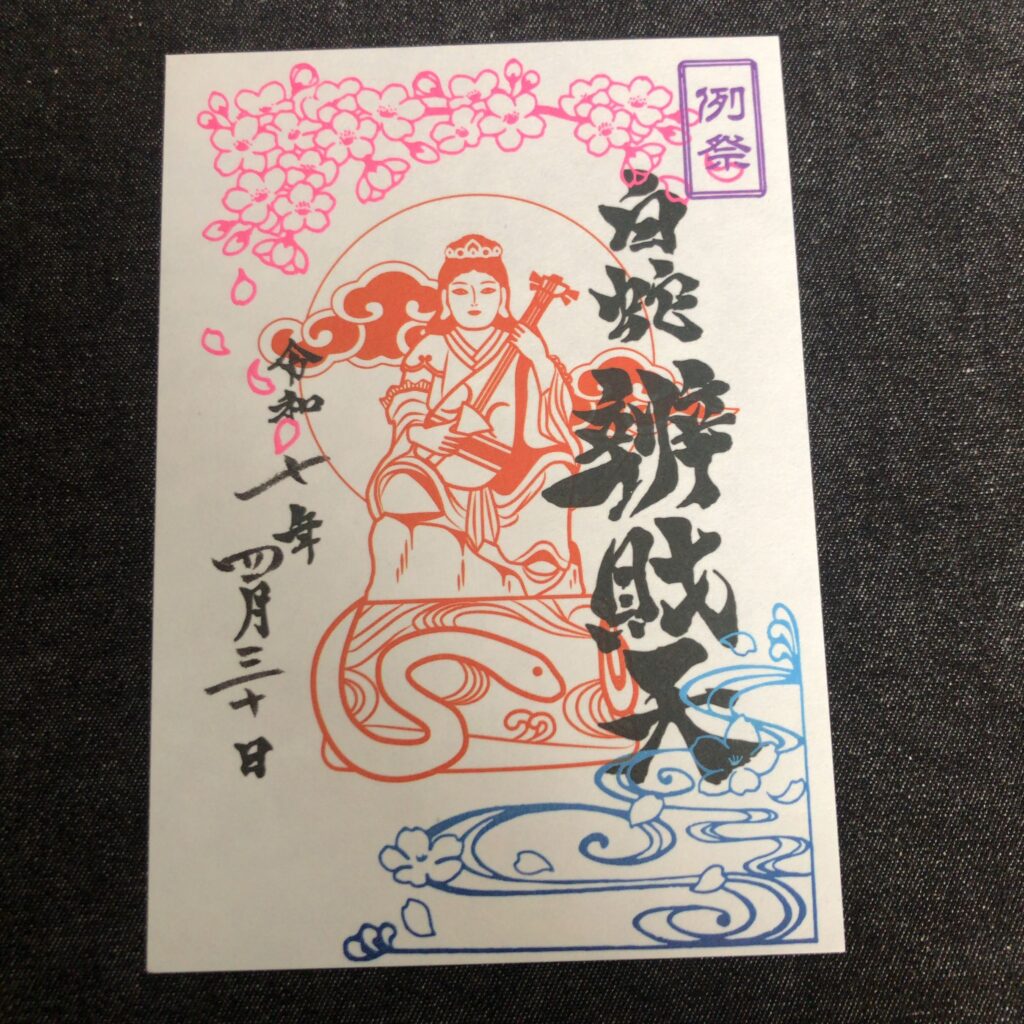 例祭
白蛇辨財天
令和七年四月三十日